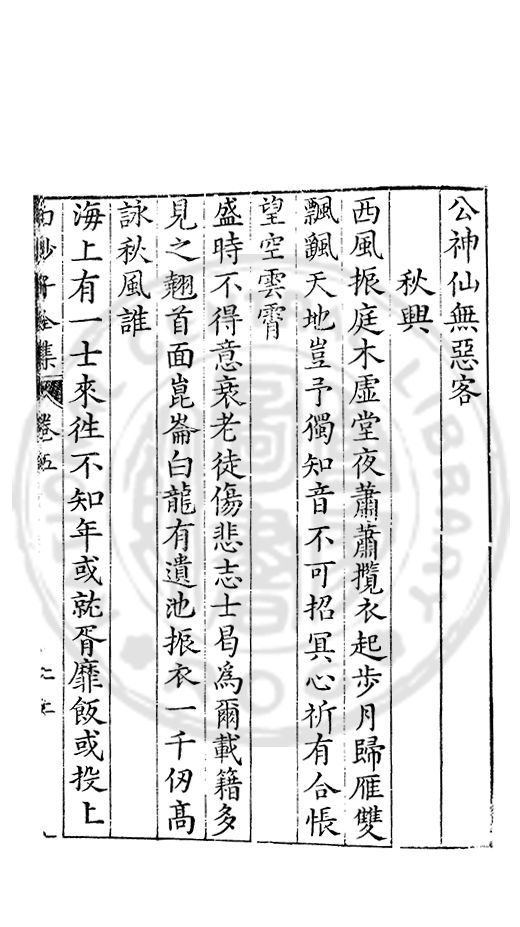 公神仙無惡客
秋興
西風振庭木虛堂夜蕭蕭攬衣起步月歸雁雙
飄飄天地豈予獨知音不可招冥心祈有合悵
望空雲霄
盛時不得意衰老徒傷悲志士曷為爾載籍多
見之翹首面崑崙白龍有遺池振衣一千仞高
詠秋風誰
海上有一士來徃不知年或就胥靡飯或投上
全集 卷五